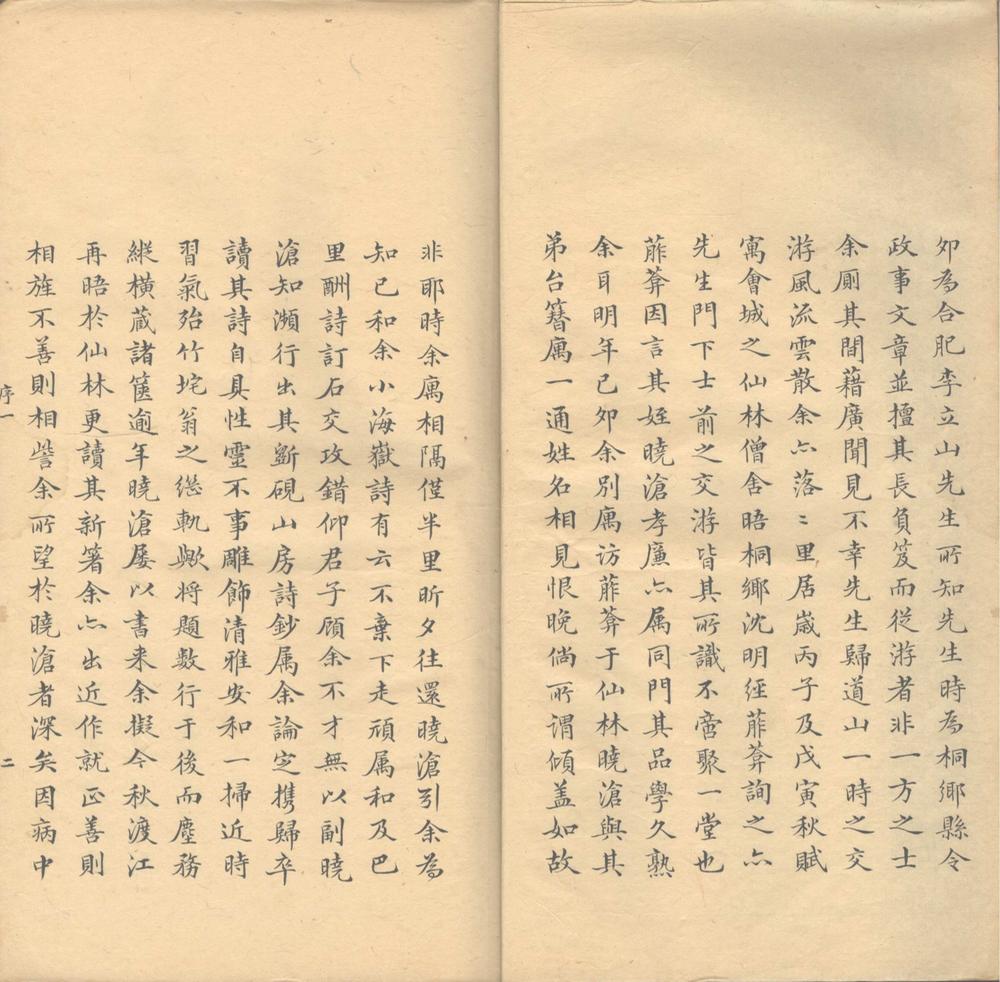 夘為合肥李立山先生所知先生時為桐鄉縣令
政事文章並擅其長負笈而從游者非一方之士
余厠其間藉廣聞見不幸先生歸道山一時之交
游風流雲散余亦落〻里居嵗丙子及戊寅秋賦
寓會城之仙林僧舍晤桐鄉沈明經菔葊詢之亦
先生門下士前之交游皆其所識不啻聚一堂也
菔葊因言其姪曉滄孝廉亦属同門其品學久熟
余耳明年己夘余別寓访菔葊于仙林曉滄與其
弟台簪寓一通姓名相見恨晚倘所謂傾盖如故
非耶時余寓相隔僅半里昕夕往還曉滄引余為
知已和余小海嶽詩有云不棄下走頑属和及巴
里酬詩訂石交攻錯仰君子顾余不才無以副曉
滄知瀕行出其斲硯山房詩鈔属余論定携歸卒
讀其詩自具性靈不事雕飾清雅安和一掃近時
習氣殆竹垞翁之继軌歟将題數行于後而塵務
縱横蔵諸篋逾年曉滄屡以書来余擬今秋渡江
再晤於仙林更讀其新箸余亦出近作就正善則
相旌不善則相訾余所望於曉滄者深矣因病中
序一
二